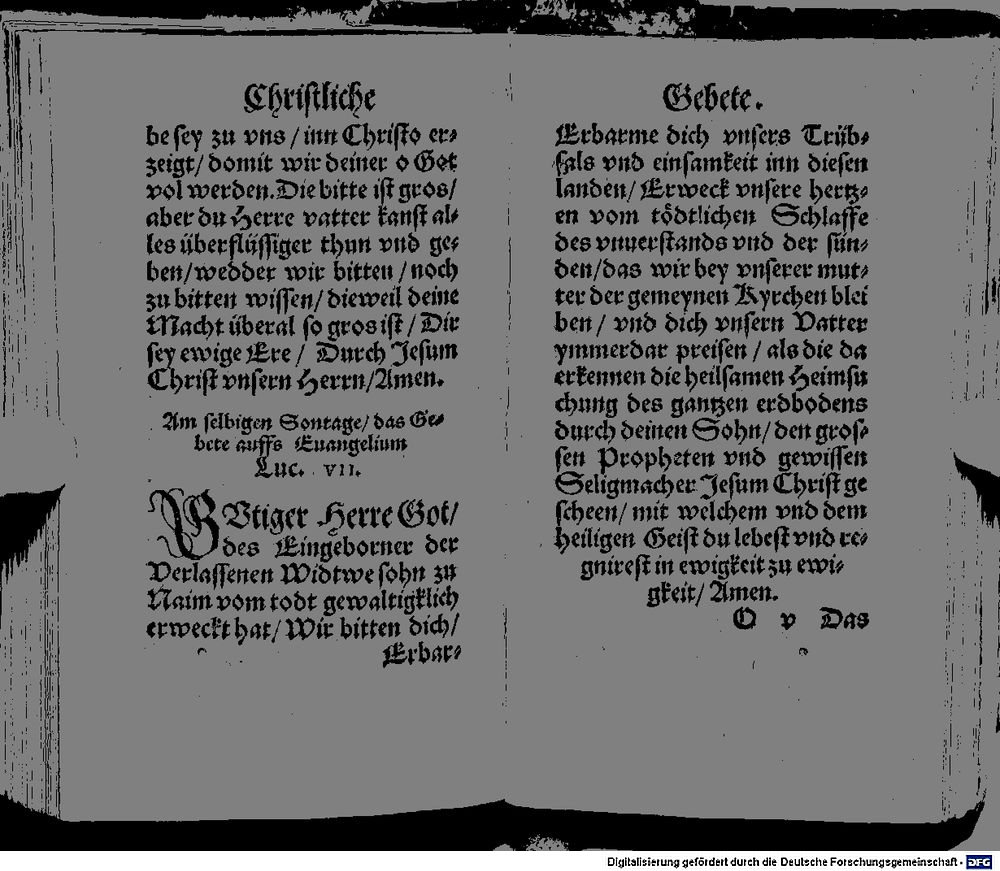 Christliche
be sey zu vns / inn Christo er⸗
zeigt / domit wir deiner o Got
vol werden. Die bitte ist gros /
aber du Herre vatter kanst al⸗
les überflüssiger thun vnd ge⸗
ben / wedder wir bitten / noch
zu bitten wissen / dieweil deine
Macht überal so gros ist / Dir
sey ewige Ere / Durch Jesum
Christ vnsern Herrn / Amen.
Am selbigen Sontage / das Ge⸗
bete auffs Euangelium
Luc. VII.
GVtiger Herre Got /
des Eingeborner der
Verlassenen Widtwe sohn zu
Naim vom todt gewaltigklich
erweckt hat / Wir bitten dich /
Erbar⸗
Gebete.
Erbarme dich vnsers Trüb⸗
sals vnd einsamkeit inn diesen
landen / Erweck vnsere hertz⸗
en vom tödtlichen Schlaffe
des vnuerstands vnd der sün⸗
den / das wir bey vnserer mut⸗
ter der gemeynen Kyrchen blei
ben / vnd dich vnsern Vatter
ymmerdar preisen / als die da
erkennen die heilsamen Heimsu
chung des gantzen erdbodens
durch deinen Sohn / den gros⸗
sen Propheten vnd gewissen
Seligmacher Jesum Christ ge
scheen / mit welchem vnd dem
heiligen Geist du lebest vnd re⸗
gnirest in ewigkeit zu ewi⸗
gkeit / Amen.
O v Das
Digitalisierung gefördert durch die Deutsche Forschungsgemeinschaft - DFG